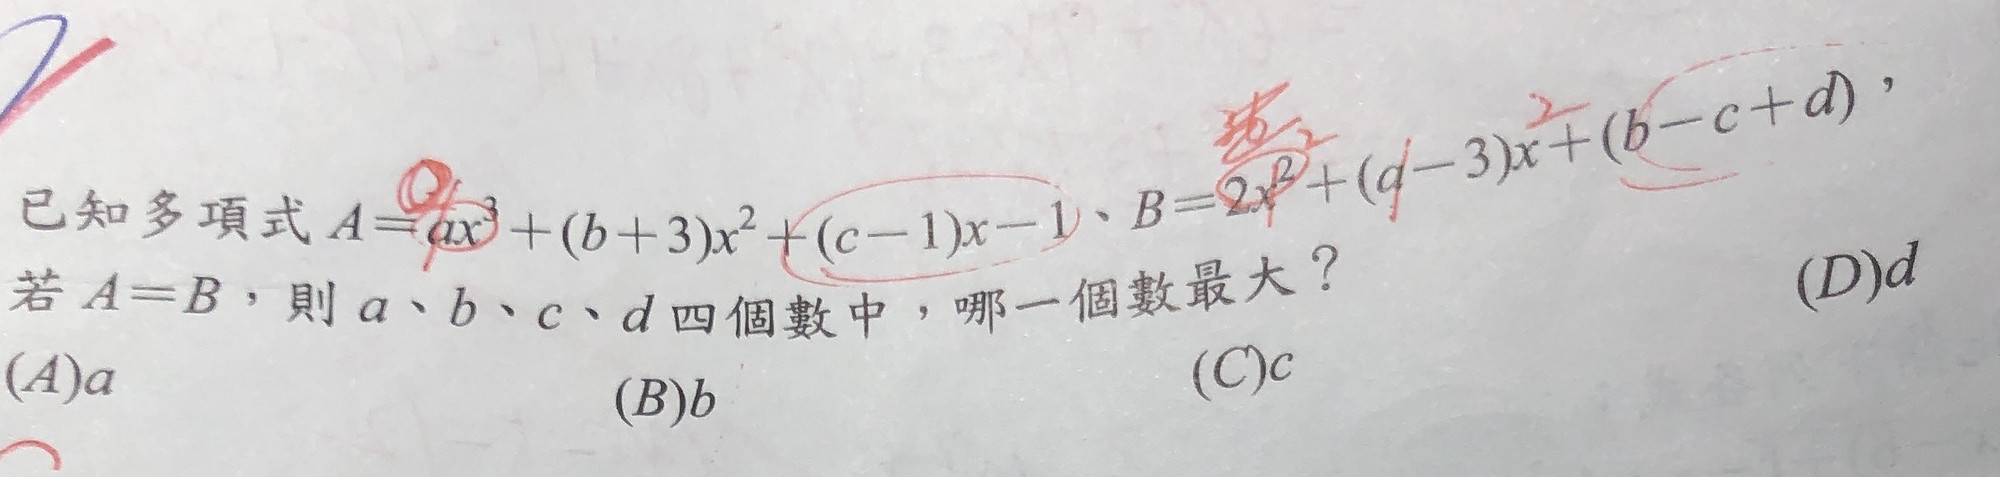 已知多項式 A=ax³+(b+3)x²+(c-1)x-1、B=2x²+(a-3)x+(b-c+d)，
若 A=B，則 a、b、c、d 四個數中，哪一個數最大？
(A)a (B)b (C)c (D)d